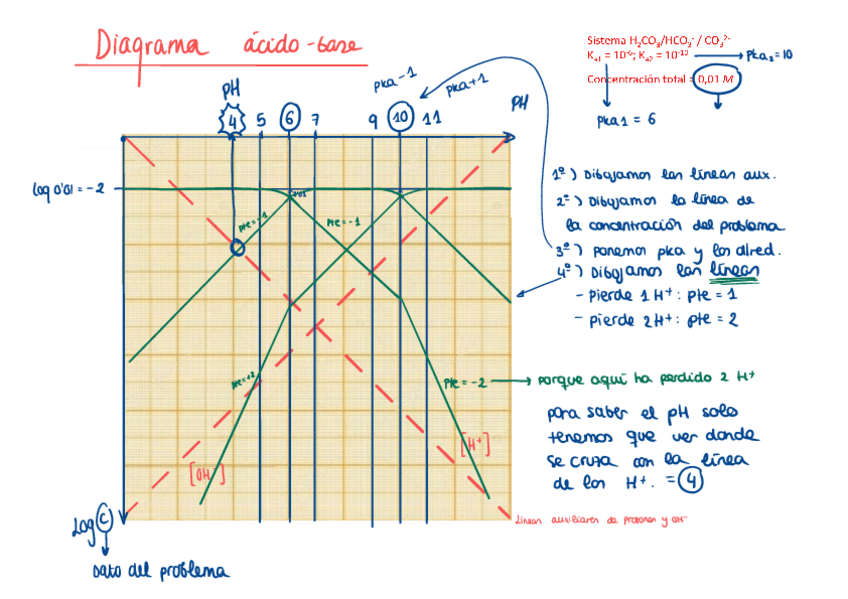 Diagrama ácido-base
Sistema H₂CO₃/HCO₃⁻ / CO₃²⁻
Ka1 = 10⁻⁶; Ka2 = 10⁻¹⁰ → pka₂ = 10
Concentración total = 0,01 M
pka1 = 6
pka-1
pka+1
PH
4 5 6 7 9 10 11
PH
log 0'01 = -2
pte=+1
pte=-1
pte=+2
pte=-2 → porque aquí ha perdido 2 H⁺
[OH⁻]
[H⁺]
1º) Dibujamos las líneas aux.
2º) Dibujamos la línea de
la concentración del problema
3º) ponemos pka y los alred.
4º) Dibujamos las líneas
- pierde 1 H⁺: pte = 1
- pierde 2 H⁺: pte = 2
para saber el pH solo
tenemos que ver donde
se cruza con la línea
de los H⁺. = 4
Líneas auxiliares de protones y OH⁻
Log C
Dato del problema